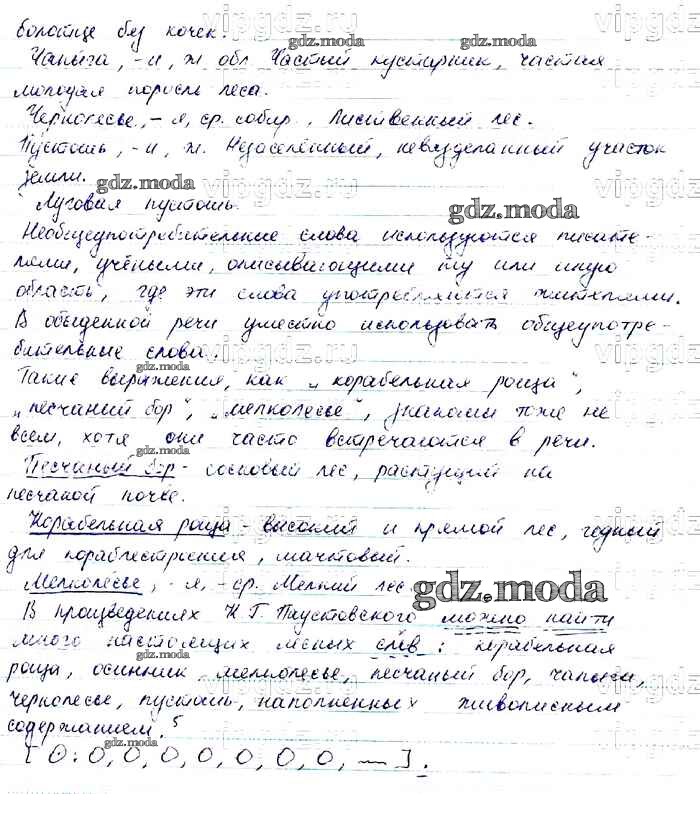 болотце без кочек.
Чапыга, -и, ж обл. Частый кустарник, частая
молодая поросль леса.
Чернолесье, -я, ср. собир., Лиственный лес.
Пустошь, -и, ж. Незаселённый, невозделанный участок
земли.
Луговая пустошь.
Необщеупотребительные слова используются писате-
лями, учёными, описывающими ту или иную
область, где эти слова употребляются жителями.
В обыденной речи уместно использовать общеупотре-
бительные слова.
Такие выражения, как „корабельная роща",
„песчаный бор", „мелколесье", знакомы тоже не
всем, хотя они часто встречаются в речи.
Песчаный бор - сосновый лес, растущий на
песчаной почве.
Корабельная роща - высокий и прямой лес, годный
для кораблестроения, мачтовый.
Мелколесье, -я, -ср. Мелкий лес.
В произведениях К.Г. Паустовского можно найти
много настоящих лесных слов: корабельная
роща, осинник, мелколесье, песчаный бор, чапыга,
чернолесье, пустошь, наполненных живописным
содержанием.5
[О: О, О, О, О, О, О, О, —].
gdz.moda
gdz.moda
gdz.moda
gdz.moda
gdz.moda
gdz.moda
gdz.moda
gdz.moda
gdz.moda
gdz.moda
gdz.moda
vipgdz.ru
vipgdz.ru
vipgdz.ru
vipgdz.ru